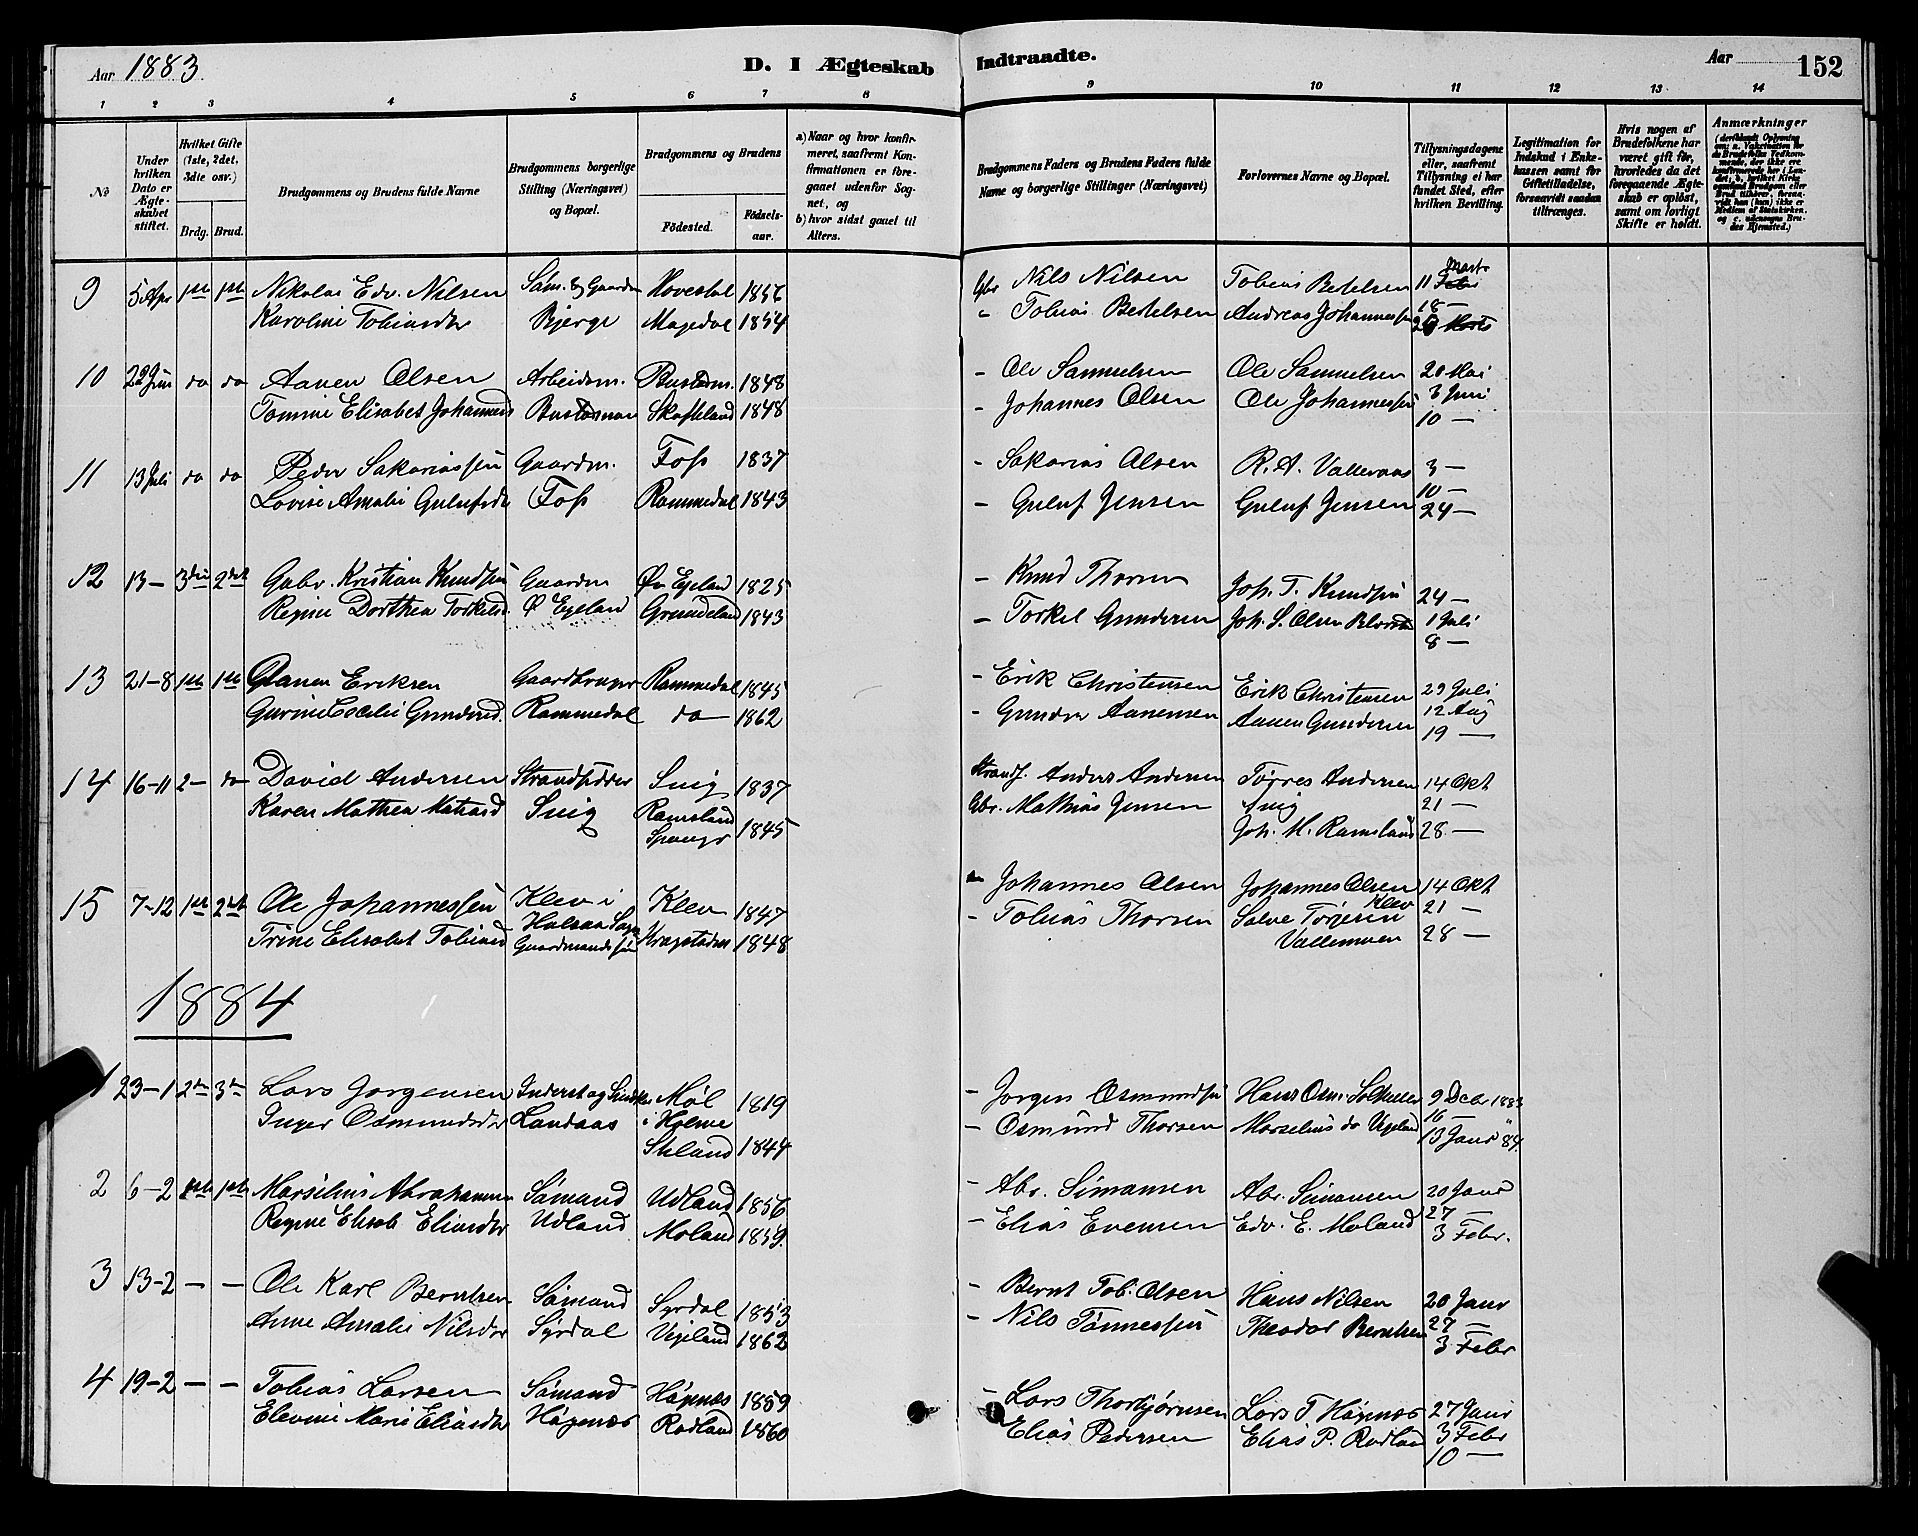 Aar 1883
D. I Ægteskab Indtraadte.
Aar 152
1 2 3 4 5 6 7 8 9 10 11 12 13 14
No
Under hvilken Dato er Ægteskabet stiftet.
Hvilket Gifte (1ste, 2det, 3die osv.)
Brdg. Brud.
Brudgommens og Brudens fulde Navne
Brudgommens borgerlige Stilling (Næringsvei) og Bopæl.
Brudgommens og Brudens
Födested.
Födselsaar.
a) Naar og hvor konfirmeret, saafremt Konfirmationen er foregaaet udenfor Sognet, og
b) hvor sidst gaaet til Alters.
Brudgommens Faders og Brudens Faders fulde Navne og borgerlige Stillinger (Næringsvei)
Forlovernes Navne og Bopæl.
Tillysningsdagene eller, saafremt Tillysning ei har fundet Sted, efter hvilken Bevilling.
Legitimation for Indskud i Enkekassen samt for Giftetilladelse, forsaavidt saadan tiltrænges.
Hvis nogen af Brudefolkene har været gift før, hvorledes da det foregaaende Ægteskab er opløst, samt om lovligt Skifte er holdt.
Anmærkninger
9 5 Apr 1ste 1ste Nikolai Edv. Nilsen Søm. & Gaardm Hovestol 1856 Gbr Nils Nilsen Tobias Betelsen 11 Marts
Karoline Tobiasdtr Bjerge Magedal 1854 " Tobias Betelsen Andreas Johannessen 18 —
10 22 Juni do do Aanen Olsen Arbeidsm. 1848 - Ole Samuelsen Ole Samuelsen 20 Mai
Tomine Elisabet Johannesd Skofteland 1848 - Johannes Olsen Ole Johannessen 3 Juni
10 —
11 13 Juli do do Peder Sakariassen Gaardm. Foss 1837 - Sakarias Olsen R. A. Valleraas 3 —
10 —
Lovise Amalie Gulufsdtr Foss Rammedal 1843 - Guluf Jensen Guluf Jensen 24 —
12 13 — 3die 2det Gabr. Kristian Knudsen Gaardm Ø Egeland 1825 - Knud Thorsen Joh. T. Knudsen 24 —
Regine Dorthea Torkelsd Ø Egeland Grundeland 1843 - Torkel Gundersen Joh. S. Olsen 1 Juli
8 —
13 21-8 1ste 1ste Aanen Eriksen Gaardbruger Rammedal 1845 - Erik Christensen Erik Christensen 29 Juli
Gurine Gundersd. Rammedal do 1862 - Gunder Aanensen Aanen Gundersen 12 Aug
19 —
14 16-11 2 — do David Andersen Strandsidder Snig 1837 Strands. Anders Andersen Tørres Andersen 14 Okt
Karen Mathea Matiasd Snig Ramsland Gbr. Mathias Jensen Snig 21 —
Spangr 1845 Joh. M. Ramsland 28 —
15 7-12 1ste 2det Ole Johannessen Klev i Klev 1847 - Johannes Olsen Johannes Olsen 14 Okt
Klev
Halsaa Sogn - Tobias Thorsen Salve Torjesen 21 —
Trine Elisabet Tobiasd Gaardmandssøn 1848 Vallemoen 28 —
1884
1 23-1 2den 3die Lars Jørgensen Møl 1819 - Jørgen Osmundsen Hans Osm. 9 Decbr 1883
Inger Osmundsdtr Landaas i Holme - Osmund Thorsen Marselius do Vigeland 16 —
1844 13 Janr 84
2 6-2 1ste 1ste Marselius Abrahamsen Sømand Udland 1856 - Abr. Simonsen Abr. Simonsen 20 Janr
Regine Elisab Eliasdtr Udland Moland 1859. - Elias Evensen Edv. E. Moland 27 —
3 Febr.
3 13-2 — — Ole Karl Berntsen Sømand Syrdal 1853 - Bernt Tob. Olsen Hans Nilsen 20 Janr
Anne Amalie Nilsdtr Syrdal Vigeland 1862 - Nils Tønnessen Theodor Berntsen 27 —
3 Febr
4 19-2 — — Tobias Larsen Sømand Høgnæs 1859 - Lars Thorbjørnsen Lars T Høgnæs 27 Janr
Elevine Marie Eliasdtr Høgenæs Rødland 1860 Elias Pedersen Elias P. Rødland 3 Febr
10 —